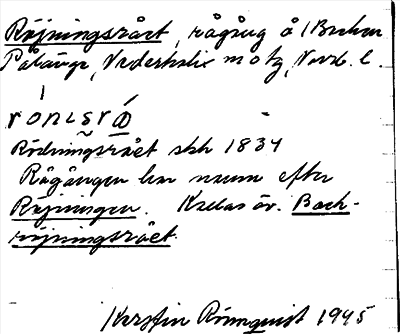 Röjningsrået, rågång å l Backen
Pålänge, Nederkalix m o tg, Norrb. l.
rönisrå
Rödningsrået skh 1834
Rågången har namn efter
Röjningen. Kallas äv. Back-
röjningsrået.
Kerstin Rönnquist 1945